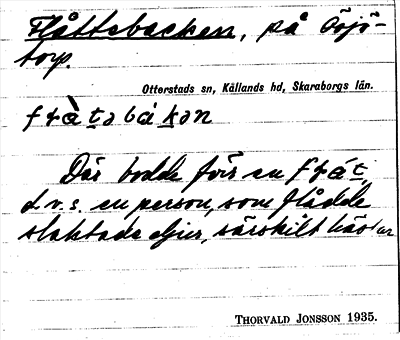 Flåttsbacken, på Öjö-
torp.
Otterstads sn, Kållands hd, Skaraborgs län.
Där bodde förr en
d.v.s. en person, som flådde
slaktade djur, särskilt hästar
THORVALD JONSSON 1935.